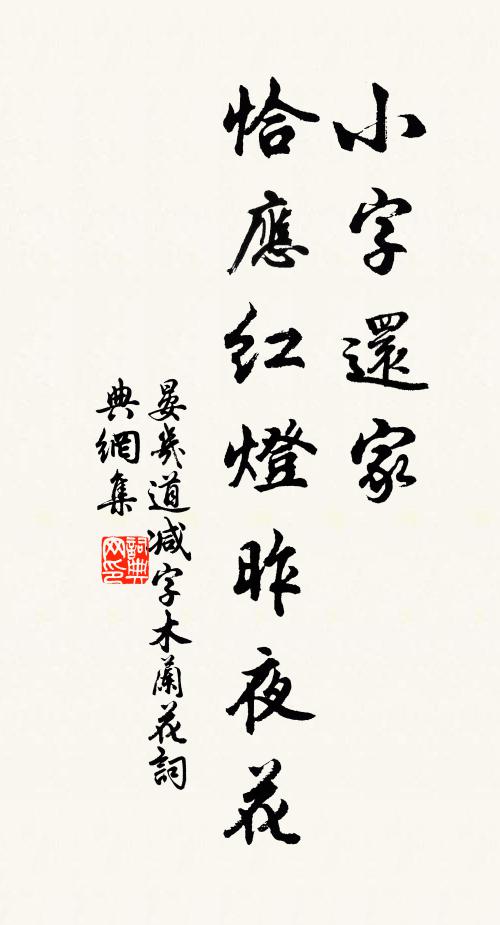 小字還家
恰應红燈昨夜花
晏幾道减字木蘭花詞
典網集
詞典
网印